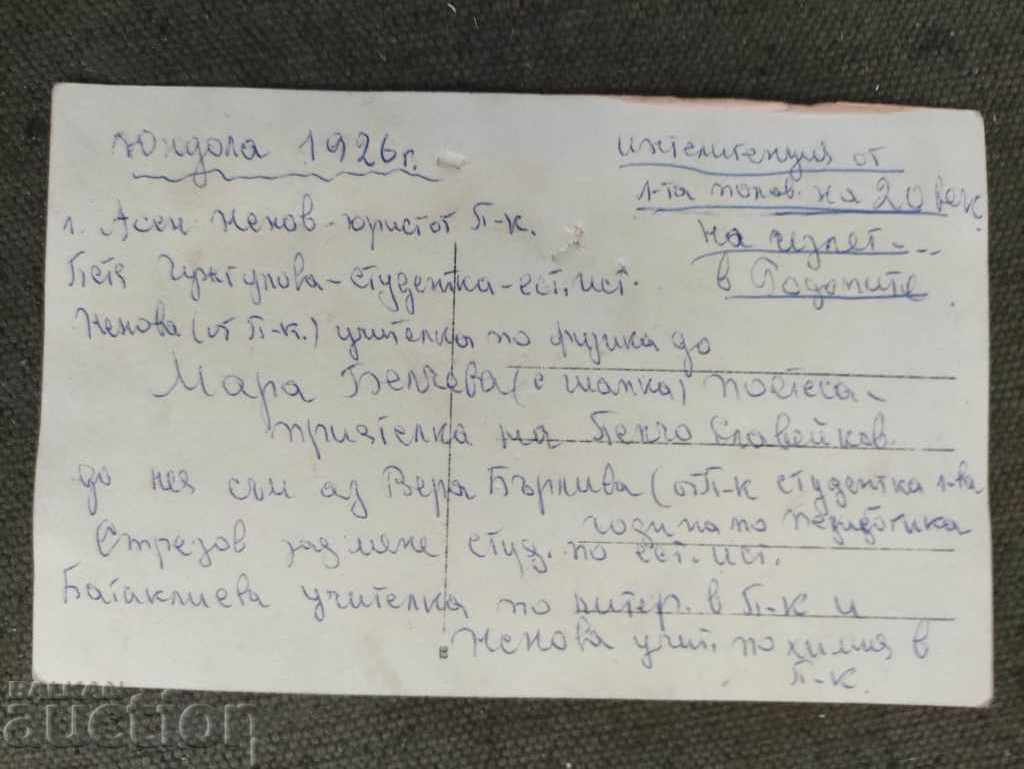 Юндола 1926 г.
интелигенция от
1-та полов. на 20 век
на излет...
в Родопите.
1. Асен Ненов - юрист от П-к.
Петя студентка - ест. ист.
Ненова (от П-к.) учителка по физика до
Мара Белчева (с шапка) поетеса -
приятелка на Пенчо Славейков
до нея съм аз Вера (от П-к студентка 1-ва
година по педагогика
Стрезов зад мене студ. по ест. ист.
Батаклиева учителка по литер. в П-к и
Ненова учит. по химия в
П-к.
БАЛКАН
auction